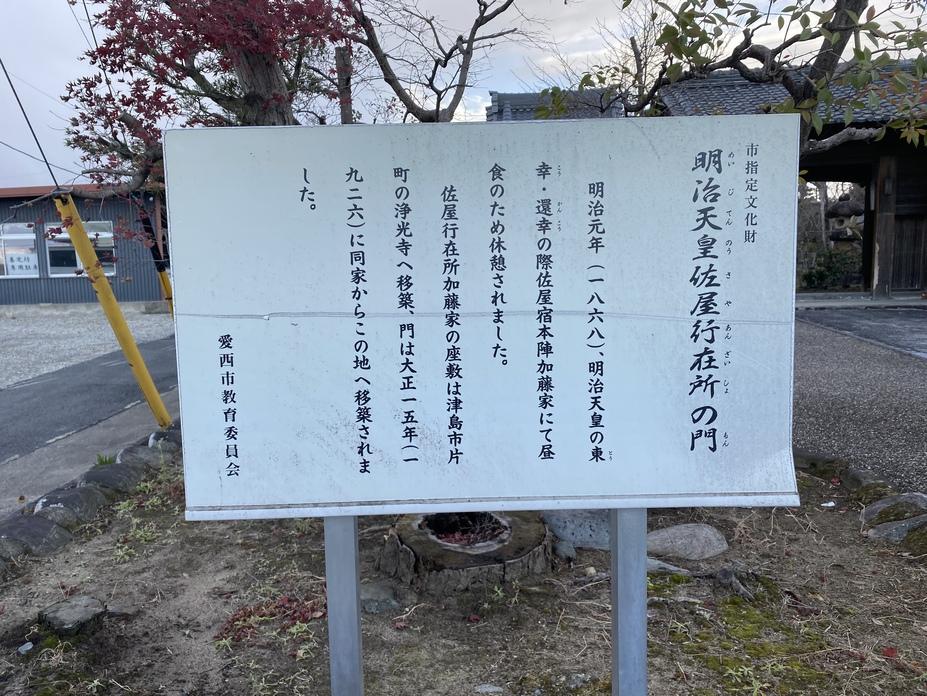 市指定文化財
明治天皇佐屋行在所の門
めいじてんのうさやあんざいしょもん
明治元年（一八六八）、明治天皇の東
とう
幸・還幸の際佐屋宿本陣加藤家にて昼
こうかんこう
食のため休憩されました。
佐屋行在所加藤家の座敷は津島市片
町の浄光寺へ移築、門は大正一五年（一
九二六）に同家からこの地へ移築されま
した。
愛西市教育委員会